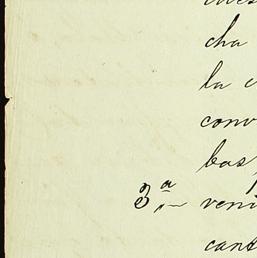 cha
la
conv
bas
3.ª— veni
cant